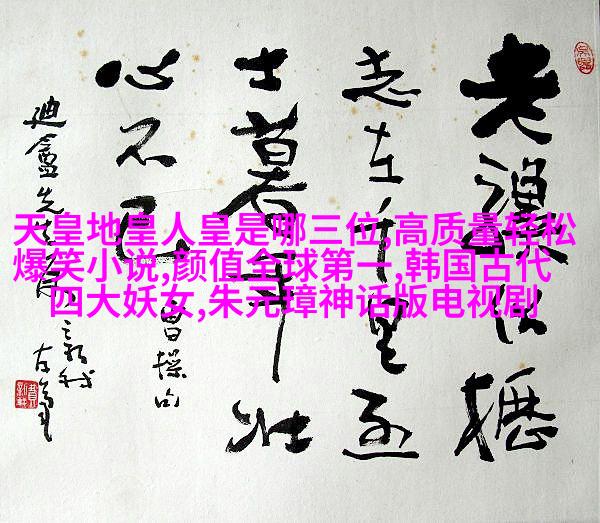 天皇地皇人皇是哪三位,高质量轻松
爆笑小说,颜值全球第一,韩国古代
四大妖女,朱元璋神话版电视剧
老驥伏櫪
志在千里烈
士暮年壮
心不已
曹操句
迪盦先生